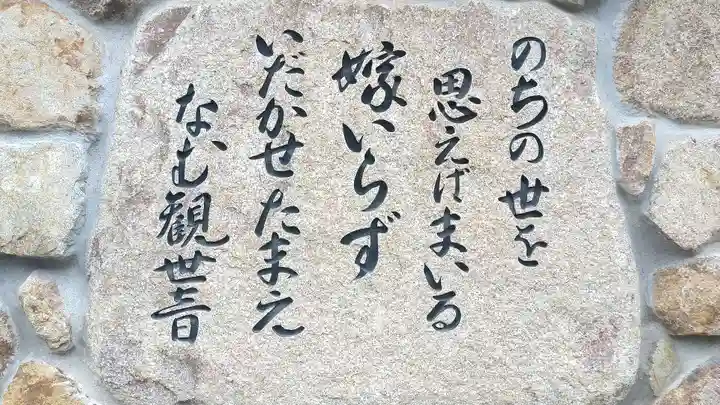 のちの世を
思えばまいる
嫁いらず
いだかせたまえ
なむ観世音